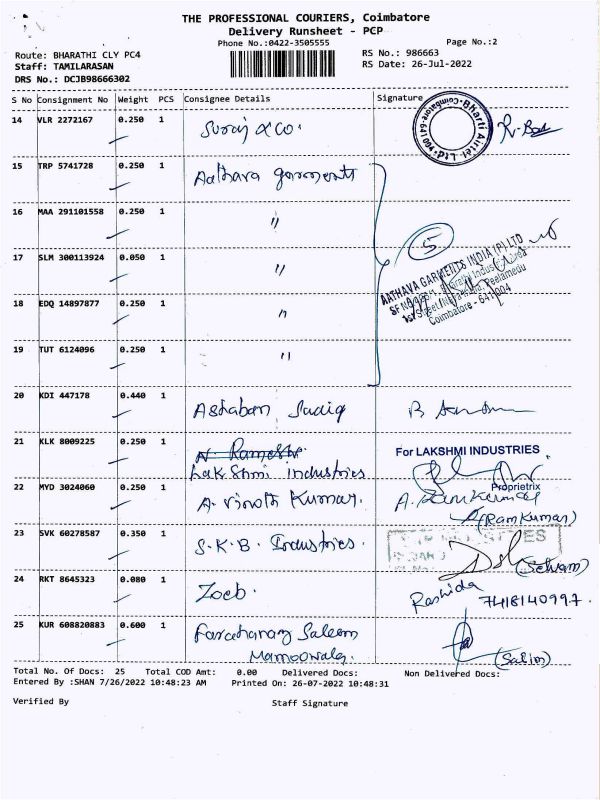 THE PROFESSIONAL COURIERS, Coimbatore
Delivery Runsheet - PCP
Phone No.:0422-3505555 Page No.:2
Route: BHARATHI CLY PC4 RS No.: 986663
Staff: TAMILARASAN RS Date: 26-Jul-2022
DRS No.: DCJB98666302
S No Consignment No Weight PCS Consignee Details Signature
14 VLR 2272167 0.250 1 Suraj & Co.
Bharti Airtel Ltd
Coimbatore-641 004
15 TRP 5741728 0.250 1 Aathava garments
16 MAA 291101558 0.250 1 "
5
17 SLM 300113924 0.050 1 "
AATHAVA GARMENTS INDIA (P) LTD
Peelamedu
Coimbatore - 641 004
18 EDQ 14897877 0.250 1 "
19 TUT 6124096 0.250 1 "
20 KDI 447178 0.440 1 Ashaban Sadiq
21 KLK 8009225 0.250 1 N. Ramesh.
Lakshmi industries
For LAKSHMI INDUSTRIES
Proprietrix
22 MYD 3024060 0.250 1 A. Vinoth Kumar.
A. Ramkumar
(Ram Kumar)
23 SVK 60278587 0.350 1 S.K.B. Industries.
(Selvam)
24 RKT 8645323 0.080 1 Zoeb.
Rashida
7418140997.
25 KUR 608820883 0.600 1 Farahanaz Saleem
Mamoowala.
(Salim)
Total No. Of Docs: 25 Total COD Amt: 0.00 Delivered Docs: Non Delivered Docs:
Entered By :SHAN 7/26/2022 10:48:23 AM Printed On: 26-07-2022 10:48:31
Verified By Staff Signature